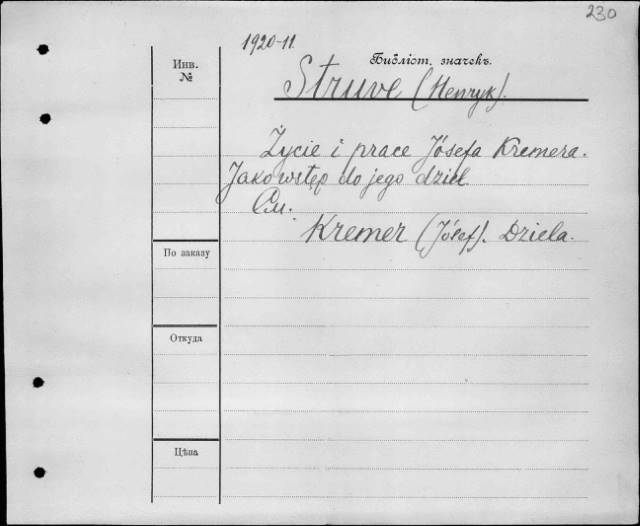 230
1920-11.
Инв.
№
Библіот. значекъ.
Struve (Henryk).
Życie i prace Józefa Kremera.
Jako wstęp do jego dzieł.
См.
Kremer (Józef). Dzieła.
По заказу
Откуда
Цѣна